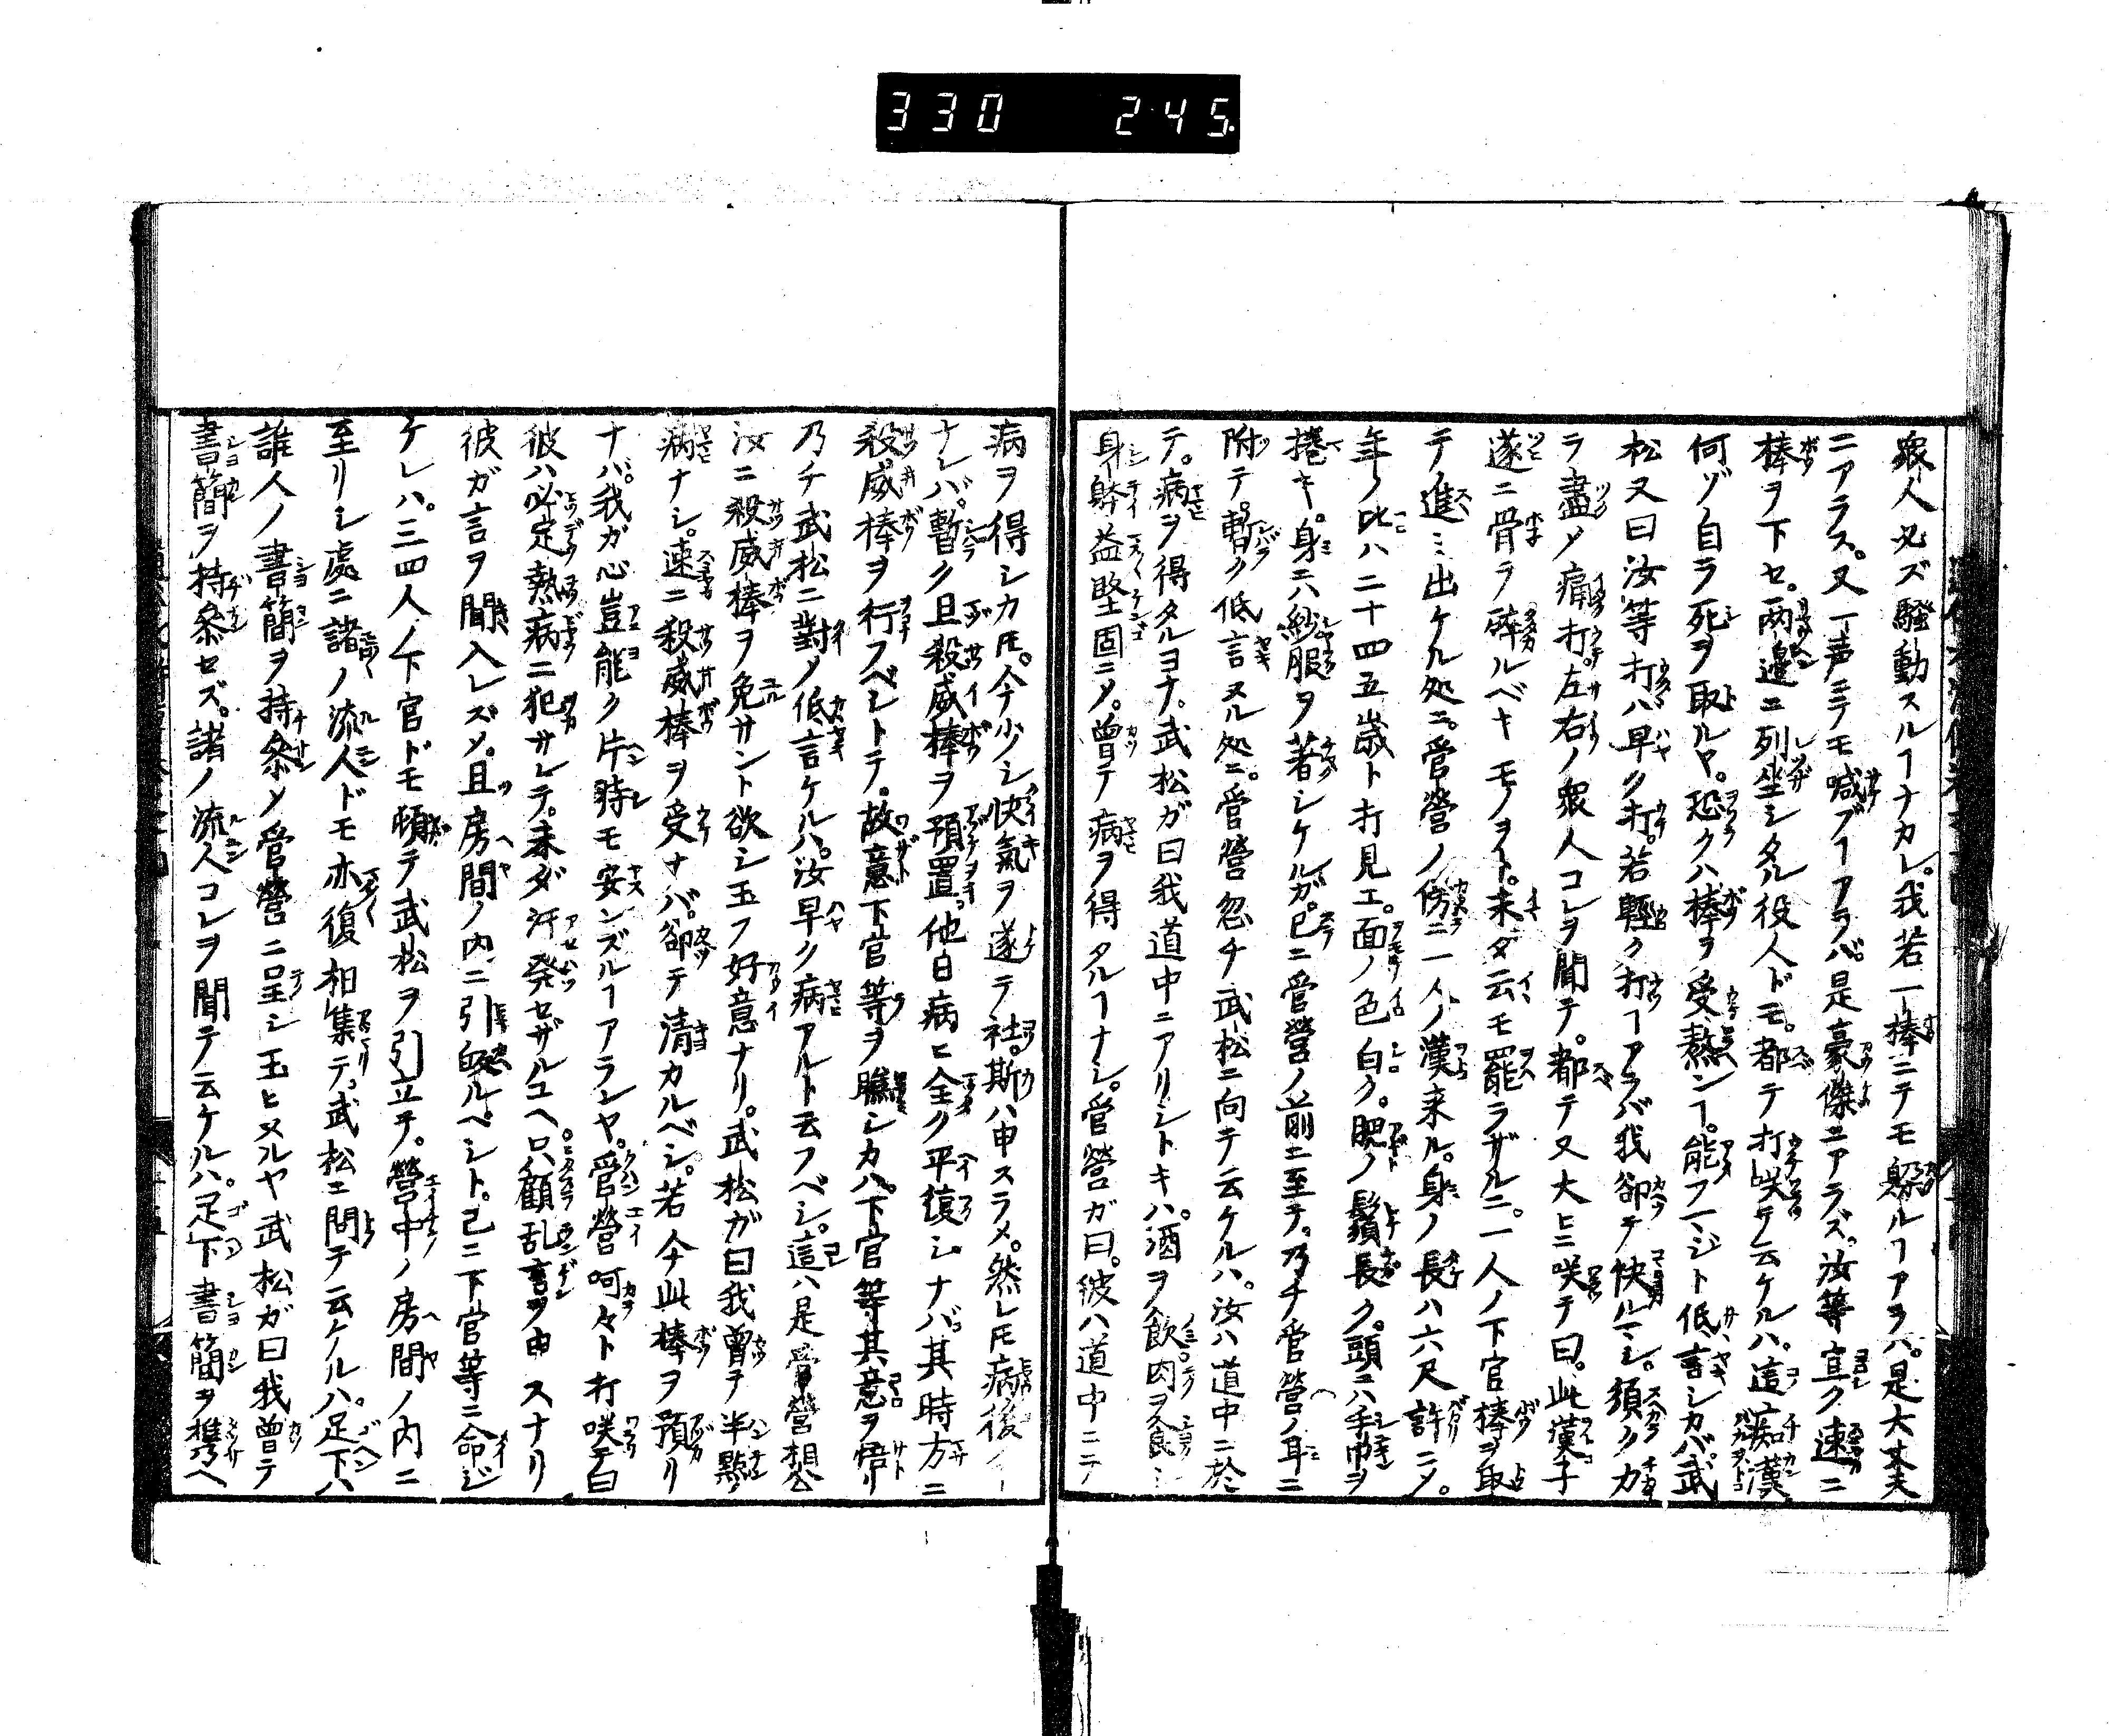 330 245.
衆人必ズ騒動スルヿナカレ。我若一棒ニテモ躱ルヿアヲハ。是大丈夫
ニアラス。又一声ニテモ喊ブヿアラバ。是豪傑ニアラズ。汝等宜ク速ニ
棒ヲ下セ。两邊ニ列坐シタル役人ドモ。都テ打咲テ云ケルハ。這痴漢。
何ゾ自ラ死ヲ取ルヤ。恐クハ棒ヲ受熬ンヿ。能フマジト低言シカバ。武
松又曰汝等打ハ早ク打。若輕ク打ヿアラバ我卻テ快ルマシ。須ク力
ラ盡メ痛打。左右ノ衆人コレヲ聞テ。都テ又大ヒニ咲テ曰。此漢子
遂ニ骨ラ碎ルベキモノヲト。未ダ云モ罷ラザルニ。一人ノ下官棒ヲ取
テ進ミ出ケル処ニ。管營ノ傍ニ一人ノ漢来ル。身ノ長ハ六尺許ニメ。
年ノ比ハ二十四五歳ト打見エ。面ノ色白ク。肥ノ鬚長ク。頭ニハ手巾ヲ
捲キ。身ニハ紗服ヲ著シケルガ。已ニ管營ノ前ニ至テ。乃チ管營ノ耳ニ
附テ。暫ク低言ヌル処ニ。管營忽チ武松ニ向テ云ケルハ。汝ハ道中ニ於
テ。病ヲ得タルヨナ。武松ガ曰我道中ニアリシトキハ。酒ヲ飲肉ヲ食シ
身躰益堅固ニメ。曾テ病ヲ得タルヿナシ。管營ガ曰。彼ハ道中ニテ
病ヲ得シカ𪜈。今少シ快氣ヲ遂テ社。斯ハ申スラメ。然レ𪜈病後ノヿ
ナレバ。暫ク且殺威棒ヲ預置。他日病ヒ全ク平復シナバ。其時方ニ
殺威棒ヲ行フベシトテ。故意下官等ヲ瞧シカハ。下官等其意ヲ悟リ
乃チ武松ニ對メ低言ケルハ。汝早ク病アルト云フベシ。這ハ是管營相公
汝ニ殺威棒ヲ免サント欲シ玉フ好意ナリ。武松ガ曰我曾テ半點ノ
病ナシ。速ニ殺威棒ヲ受ナバ。卻テ清カルベシ。若今此棒ヲ預リ
ナバ。我ガ心豈能ク片時モ安ンズルヿアランヤ。管營呵々ト打咲テ曰
彼ハ必定熱病ニ犯サレテ。未ダ汗発セザルユヘ。只顧乱言ヲ申スナリ
彼ガ言ヲ聞入レズメ。且房間ノ内ニ引皈ルベシト。已ニ下官等ニ命ジ
ケレハ。三四人ノ下官ドモ頓テ武松ヲ引立テ。營中ノ房間ノ内ニ
至リシ處ニ諸ノ流人ドモ亦復相集テ。武松ニ問テ云ケルハ。足下ハ
誰人ノ書簡ヲ持参メ管營ニ呈シ玉ヒヌルヤ武松ガ曰我曾テ
書簡ヲ持参セズ。諸ノ流人コレヲ聞テ云ケルハ。足下書簡ヲ携ヘ